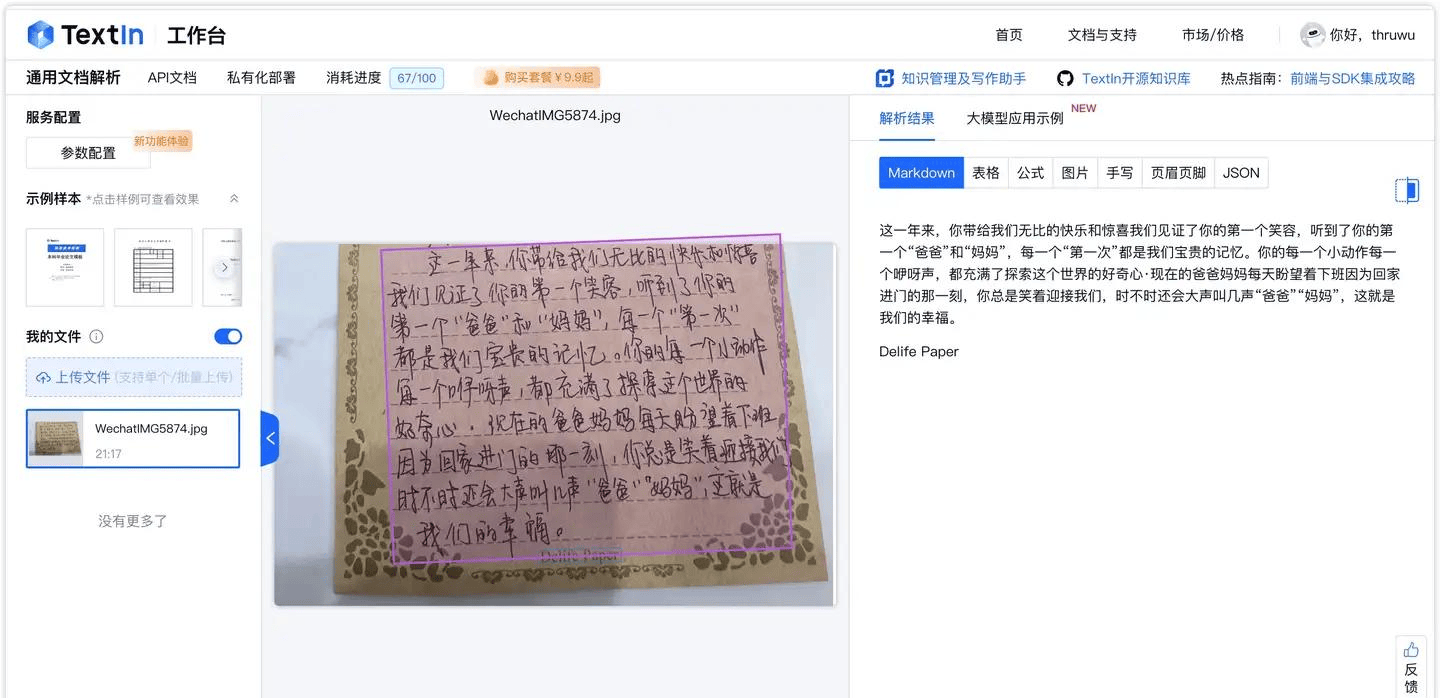 TextIn 工作台 首页 文档与支持 市场/价格 你好，thruwu
通用文档解析 API文档 私有化部署 消耗进度 67/100 购买套餐￥9.9起 知识管理及写作助手 TextIn开源知识库 热点指南：前端与SDK集成攻略
服务配置
新功能体验
参数配置
示例样本 *点击样例可查看效果
我的文件
上传文件 (支持单个/批量上传)
WechatIMG5874.jpg
21:17
没有更多了
WechatIMG5874.jpg
这一年来，你带给我们无比的快乐和惊喜
我们见证了你的第一个笑容，听到了你的
第一个“爸爸”和“妈妈”，每一个“第一次”
都是我们宝贵的记忆。你的每一个小动作
每一个咿呀声，都充满了探索这个世界的
好奇心·现在的爸爸妈妈每天盼望着下班
因为回家进门的那一刻，你总是笑着迎接我们
时不时还会大声叫几声“爸爸”“妈妈”，这就是
我们的幸福。
Delife Paper
解析结果 大模型应用示例 NEW
Markdown 表格 公式 图片 手写 页眉页脚 JSON
这一年来，你带给我们无比的快乐和惊喜我们见证了你的第一个笑容，听到了你的第
一个“爸爸”和“妈妈”，每一个“第一次”都是我们宝贵的记忆。你的每一个小动作每一
个咿呀声，都充满了探索这个世界的好奇心·现在的爸爸妈妈每天盼望着下班因为回家
进门的那一刻，你总是笑着迎接我们，时不时还会大声叫几声“爸爸”“妈妈”，这就是
我们的幸福。
Delife Paper
反
馈